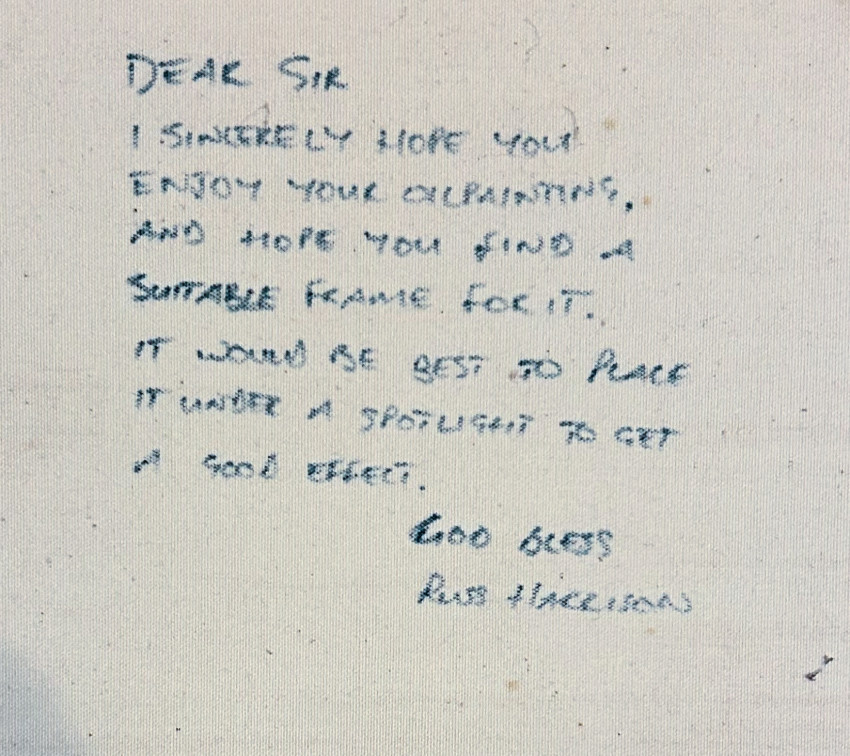 DEAR SIR
I SINCERELY HOPE YOU
ENJOY YOUR OILPAINTING,
AND HOPE YOU FIND A
SUITABLE FRAME FOR IT.
IT WOULD BE BEST TO PLACE
IT UNDER A SPOTLIGHT TO GET
A GOOD EFFECT.
GOD BLESS
RUSS HARRISON